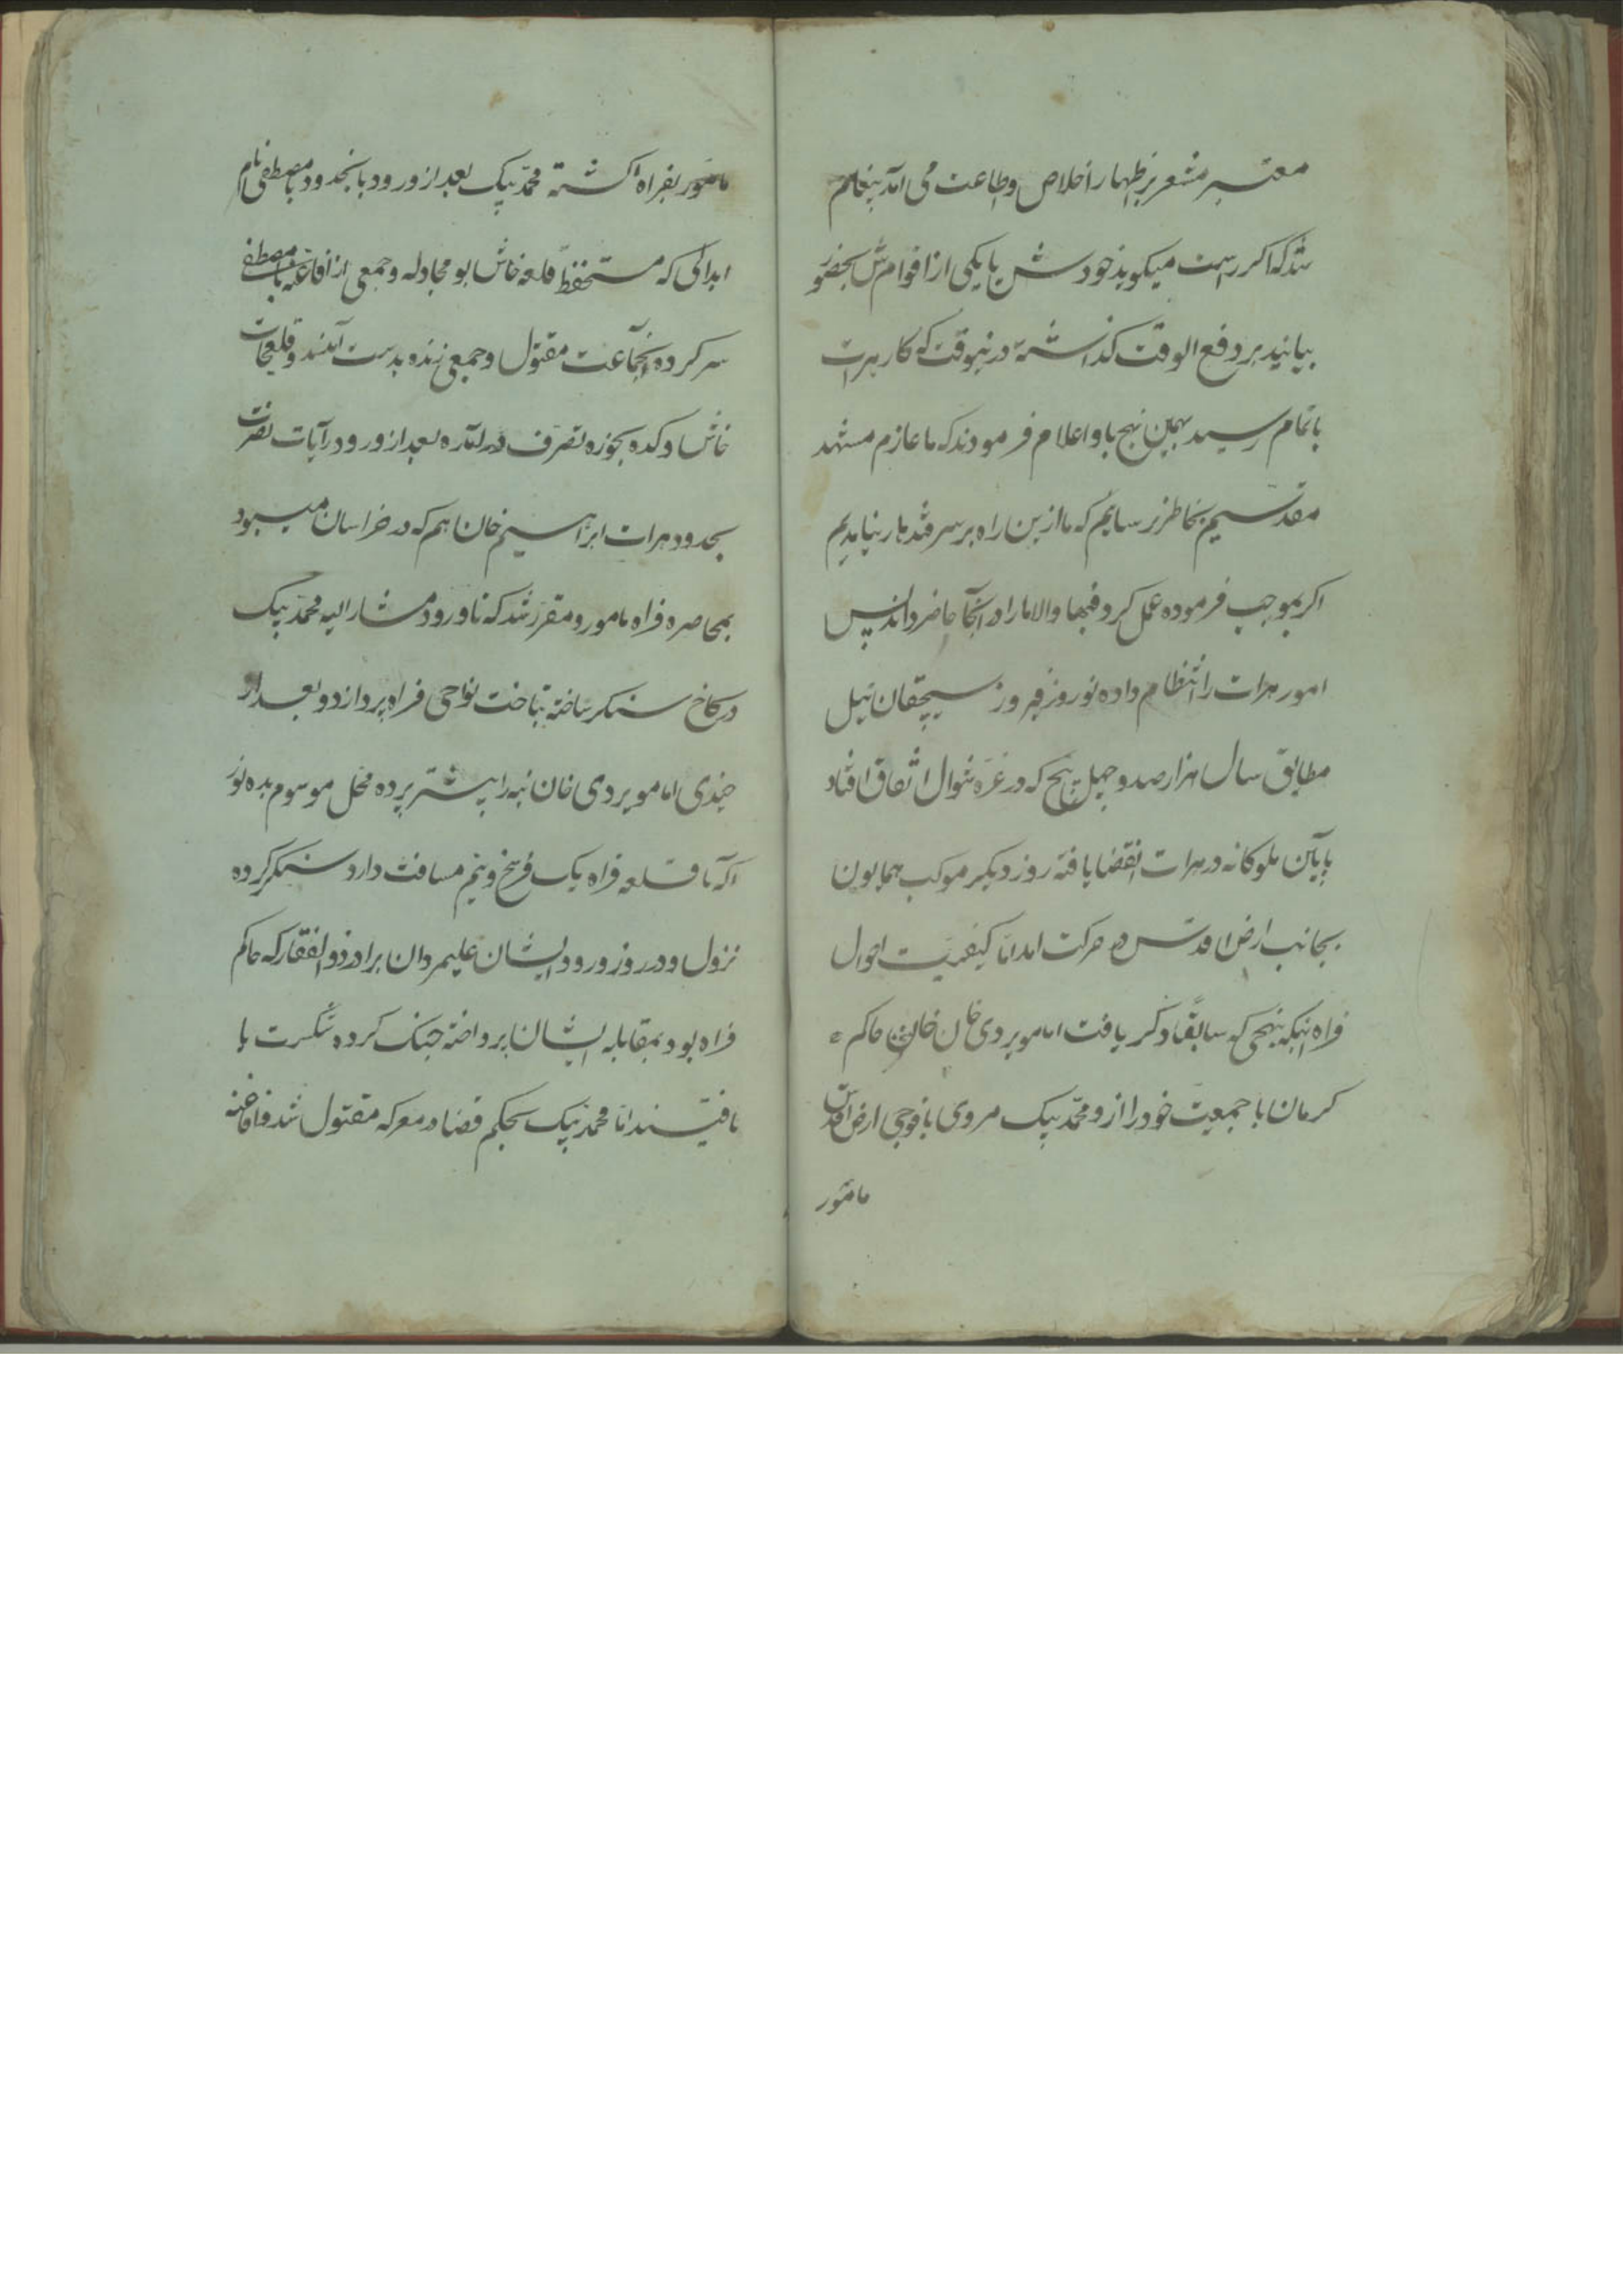 معتبر مشعر بر اظهار اخلاص و اطاعت می آمد پیغام
شد که اکر راست میکوید خودش یا یکی از اقوامش بحضور
بیایند بر دفع الوقت کذاشته درینوقت که کار هرات
باتمام رسید بهمین نهج باو اعلام فرمودند که ما عازم مشهد
مقدسیم بخاطر برسانیم که ما ازین راه بر سر قندهار بیاییم
اکر بموجب فرموده عمل کرد فبها والا ما را در آنجا حاضر داند پس
امور هرات را انتظام داده نوروز فیروز سیچقان ئیل
مطابق سال هزار صد و چهل پنج که در غره شوال اتفاق افتاد
بآیین ملوکانه در هرات انقضا یافته روز دیکر موکب همایون
بجانب ارض اقدس در حرکت امد اما کیفیت احوال
فراه اینکه بنهجی که سابقا ذکر یافت امامویردی خان حاکم
کرمان با جمعیت خود را از و محمد بیک مروی با فوجی ارض اقدس
مامور
مامور بفراه کشته محمد بیک بعد از ورود بانحدود با مصطفی نام
ابدالی که مستحفظ قلعه خاش بو مجادله و جمعی از افاغنه با مصطفی
سرکرده آنجماعت مقتول و جمعی زنده بدست آمدند و قلعجات
خاش و کده بحوزه تصرف درامده بعد از ورود رآیات نصرت
بحدود هرات ابراهیم خان هم که در خراسان میبود
بمحاصره فراه مامور و مقرر شد که تا ورود مشار الیه محمد بیک
در کاخ سنکر ساخته بتاخت نواحی فراه پردازد و بعد از
چندی امامویردی خان بنه را پیشتر برده محل موسوم بده نو
که تا قلعه فراه یک فرسخ و نیم مسافت دارد سنکر کرده
نزول و در روز ورود ایشان علیمردان برادر ذوالفقار که حاکم
فراه بود بمقابله ایشان پرداخته جنک کرده شکست یا
یافتند اما محمد بیک بحکم قضا در معرکه مقتول شد و افاغنه